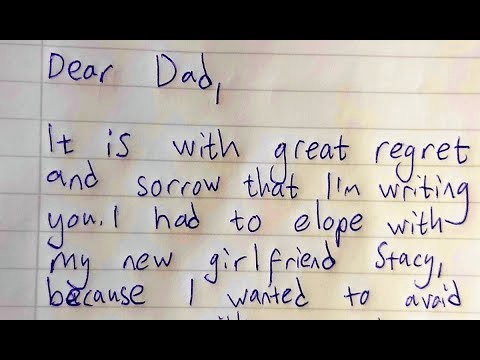 Dear Dad,
It is with great regret
and sorrow that I'm writing
you. I had to elope with
my new girlfriend Stacy,
because I wanted to avoid